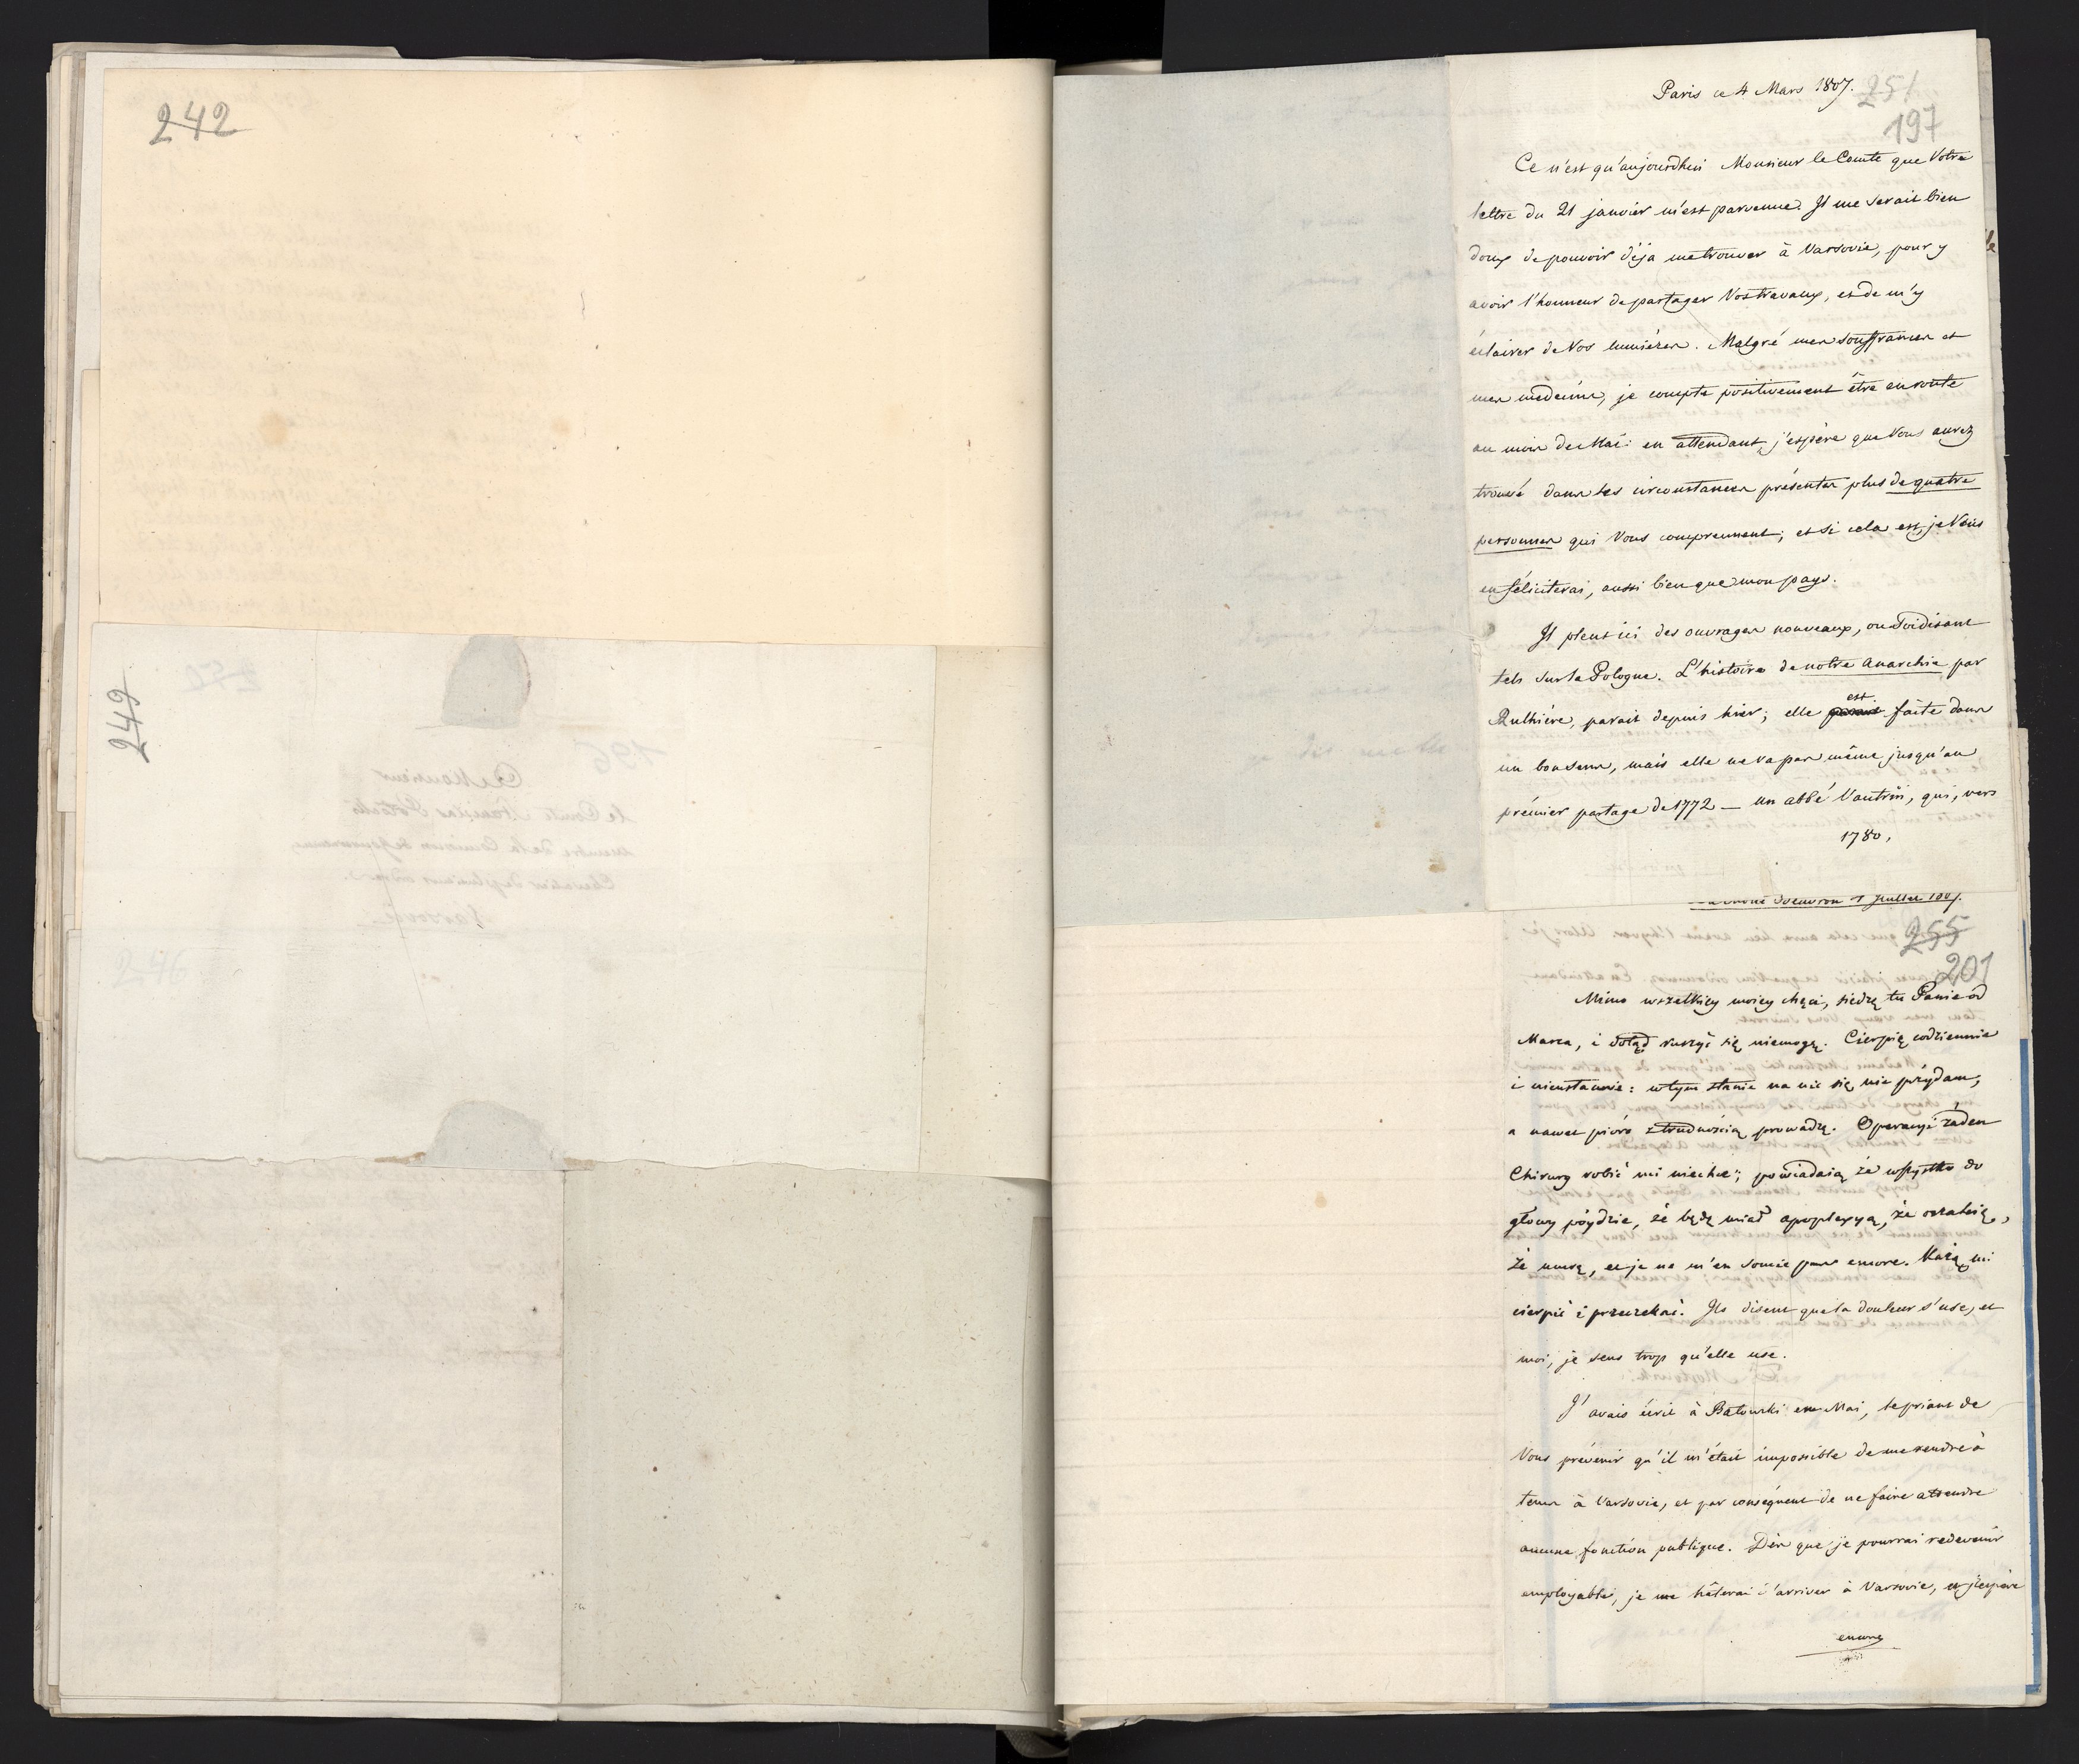 242
249
246
Paris ce 4 Mars 1807.
251
197
Ce n'est qu'aujourdhui Monsieur le Comte que Votre
lettre du 21 janvier m'est parvenue. Il me serait bien
doux de pouvoir déja me trouver à Varsovie, pour y
avoir l'honneur de partager Vos travaux, et de m'y
éclairer de Vos lumiéres. Malgré mes souffrances et
mes medecins, je compte positivement être en route
au mois de Mai: en attendant, j'espére que Vous aurez
trouvé dans les circonstances présentes plus de quatre
personnes qui Vous comprennent; et si cela est, je Vous
en féliciterai, aussi bien que mon pays.
Il pleut ici des ouvrages nouveaux, ou soidisant
tels sur la Pologne. L'histoire de notre Anarchie par
Rulhiére, parait depuis hier; elle est faite dans
un bon sens, mais elle ne va pas même jusqu'au
prémier partage de 1772 — Un abbé Vautrin, qui, vers
1780,
1 Juillet 1807.
255
201
Mimo wszelkiey moiey chęci, siedzę tu Panie od
Marca, i dotąd ruszyć się niemogę. Cierpię codziennie
i nieustannie: w tym stanie na nic się nie przydam,
a nawet pióro z trudnością prowadzę. Operacyi żaden
Chirurg robić mi niechce; powiadaią że wszystko do
głowy póydzie, że będę miał apoplexyą, że oszaleię,
że umrę, et je ne m'en soucie pas encore. Każą mi
cierpić i przeczekać. Ils disent que la douleur s'use, et
moi, je sens trop qu'elle use.
J'avais écrit à Batowski en Mai, le priant de
Vous prévenir qu'il m'était impossible de me rendre à
tems à Varsovie, et par conséquent de ne faire attendre
aucune fonction publique. Dès que je pourrai redevenir
employable, je me hâterai d'arriver à Varsovie, et j'espére
encore